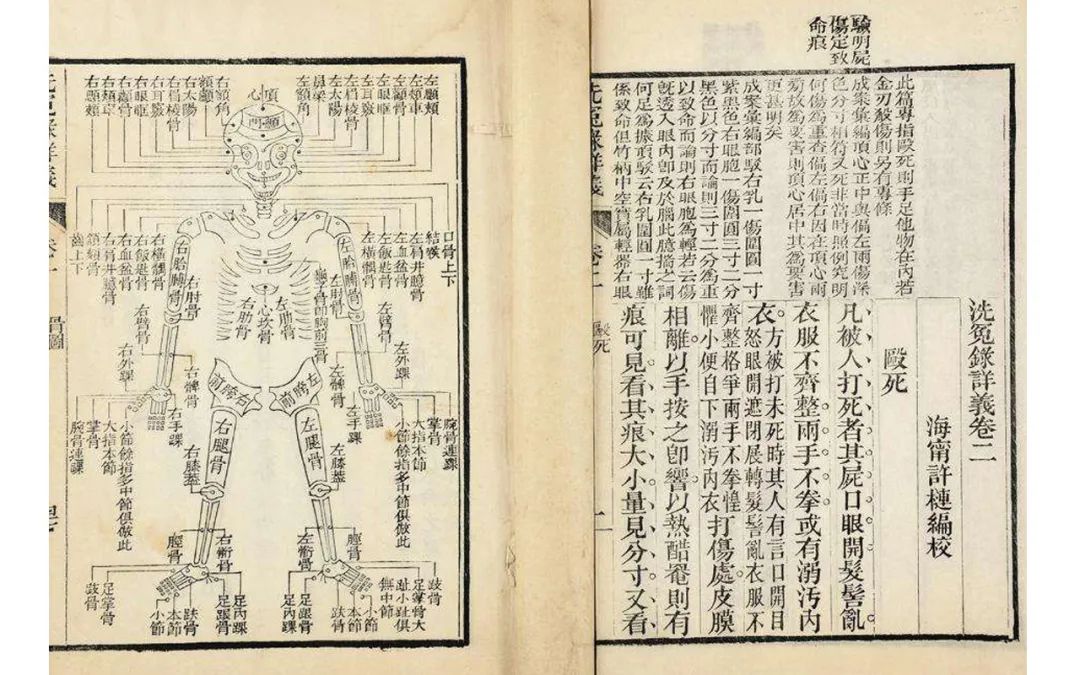 驗明屍
傷定致
命痕
洗冤錄詳義卷二
海甯許槤編校
毆死
此篇專指毆死則手足他物在內若
金刃殺傷則另有專條
成案彙編頂心正中與偏左兩傷深
色分寸相符又死非當時照例究明
何傷爲重查偏左偏右因在頂心兩
旁故爲要害則頂心居中其爲要害
更甚明矣
成案彙編部駁右乳一傷圍圓一寸
紫黑色右眼胞一傷圍圓三寸二分
黑色以分寸而論則三寸二分爲重
以致命而論則右眼胞爲輕若云傷
旣透入眼內卽及於腦此臆揣之詞
何足爲據頂駁云右乳圍圓一寸雖
係致命但竹柄中空實屬輕器右眼
凡被人打死者其屍口眼開髮髻亂
衣服不齊整兩手不拳或有溺污內
衣。方被打未死時其人有言口開目
怒眼開遮閉展轉髮髻亂衣服不
齊整格爭兩手不拳惶
懼小便自下溺污內衣打傷處皮膜
相離以手按之卽響以熱醋罨則有
痕可見看其痕大小量見分寸又看
洗冤錄詳義
卷二
毆死
一
左顋頰
左頰車
左顴骨
左眼眶
左眉棱骨
左耳竅
左太陽
鼻梁
左額角
頂心
顖門
右額角
額顱
右太陽
右眉棱骨
右耳竅
右眼眶
右顴骨
右頰車
右顋頰
口骨上下
結喉
左肩井臆骨
左血盆骨
左飯匙骨
左橫髃骨
右橫髃骨
右飯匙骨
右血盆骨
右肩井臆骨
頷頦骨
齒上下
左胳膊骨
右胳膊骨
左肘骨
右肘骨
左肋骨
心坎骨
右肋骨
左臂骨
右臂骨
左外踝
右外踝
左髀骨
右髀骨
左手踝
右手踝
腕骨連踝
掌骨
大指本節
小節餘指多中節俱倣此
小節餘指多中節俱倣此
大指本節
掌骨
腕骨連踝
左胯前
右胯前
左腿骨
右腿骨
左膝蓋
右膝蓋
脛骨
左䯒骨
右䯒骨
脛骨
歧骨
足掌骨大
趾小趾俱
無中節
小節
本節
趺骨
足踝骨
足內踝
足內踝
足踝骨
趺骨
本節
小節
足掌骨
歧骨
洗冤錄詳義
卷一
骨圖